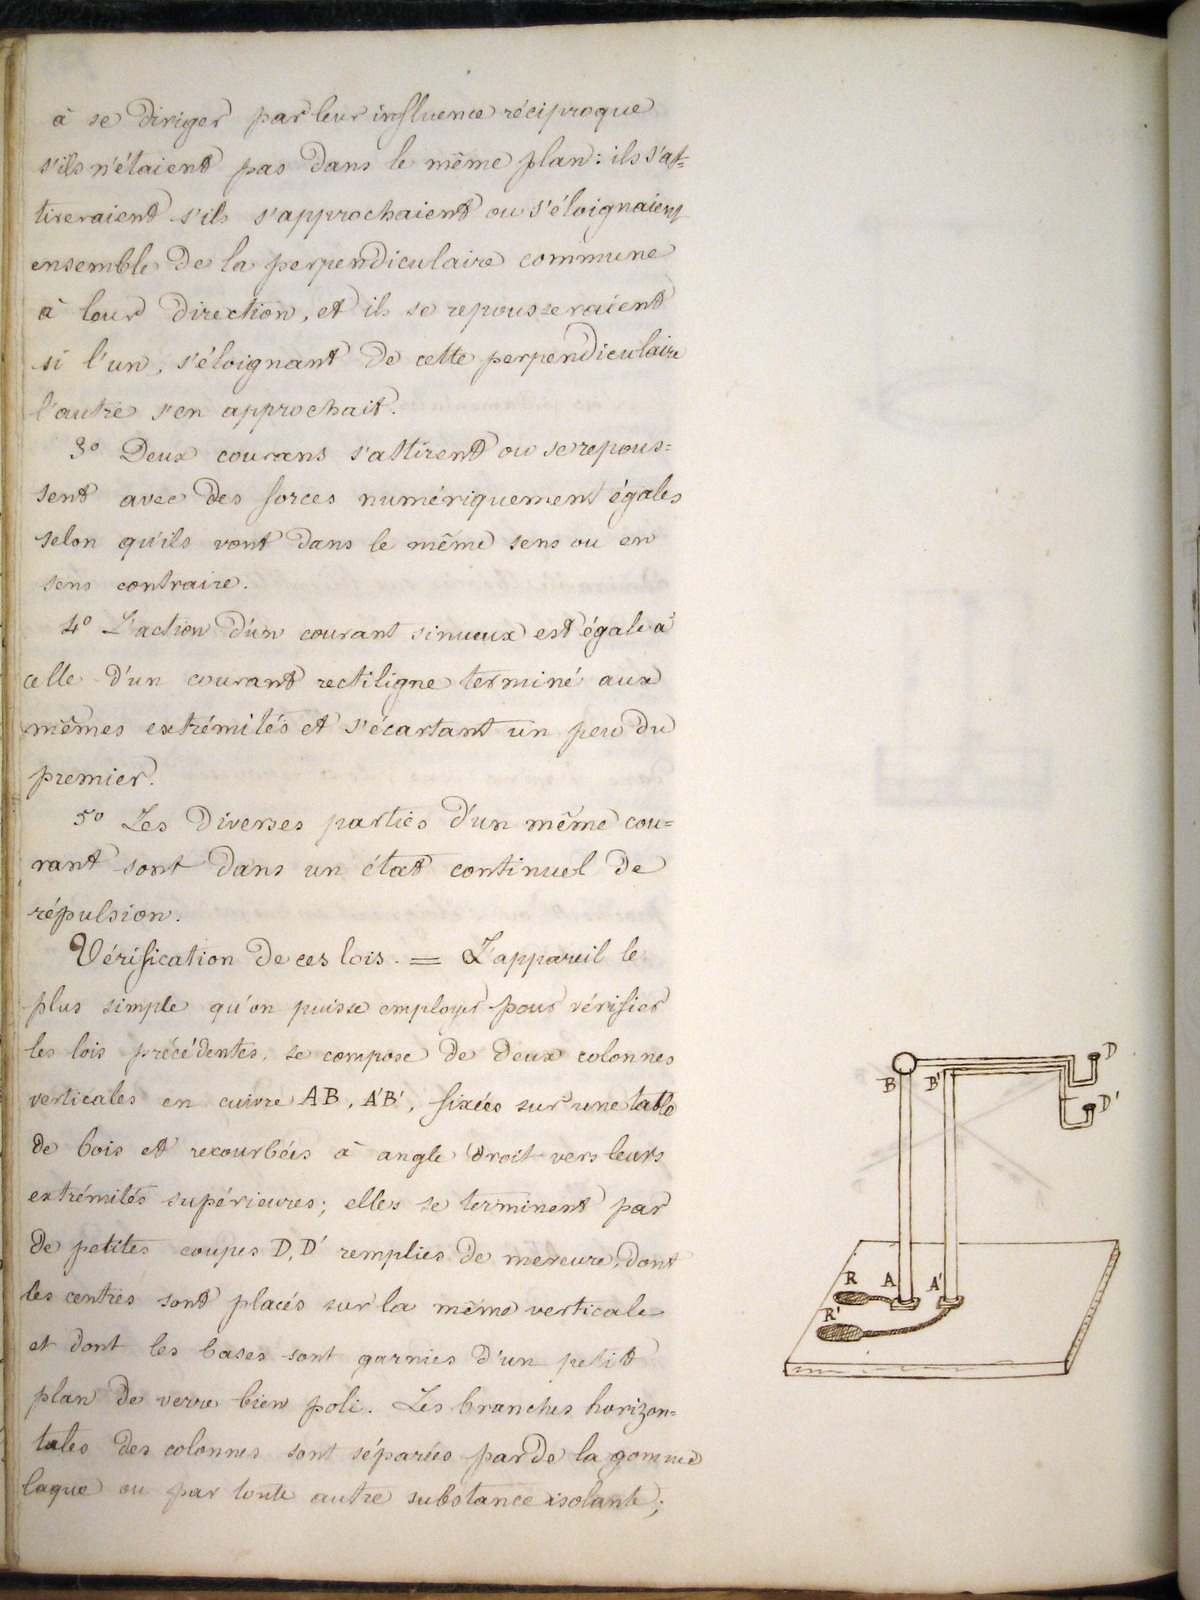 à se diriger par leur influence réciproque
s'ils n'étaient pas dans le même plan : ils s'at=
tireraient s'ils s'approchaient ou s'éloignaient
ensemble de la perpendiculaire commune
à leur direction, et ils se repousseraient
si l'un, s'éloignant de cette perpendiculaire
l'autre s'en approchait.
3° Deux courans s'attirent ou se repous=
sent avec des forces numériquement égales
selon qu'ils vont dans le même sens ou en
sens contraire.
4° L'action d'un courant sinueux est égale à
celle d'un courant rectiligne terminé aux
mêmes extrémités et s'écartant un peu du
premier.
5° Les diverses parties d'un même cou=
rant sont dans un état continuel de
répulsion.
Vérification de ces lois. = L'appareil le
plus simple qu'on puisse employer pour vérifier
les lois précédentes, se compose de deux colonnes
verticales en cuivre AB, A'B', fixées sur une table
de bois et recourbées à angle droit vers leurs
extrémités supérieures ; elles se terminent par
de petites coupes D, D' remplies de mercure, dont
les centres sont placés sur la même verticale
et dont les bases sont garnies d'un petit
plan de verre bien poli. Les branches horizon=
tales des colonnes sont séparées par de la gomme
laque ou par toute autre substance isolante ;
B B' D
D'
R A A'
R'